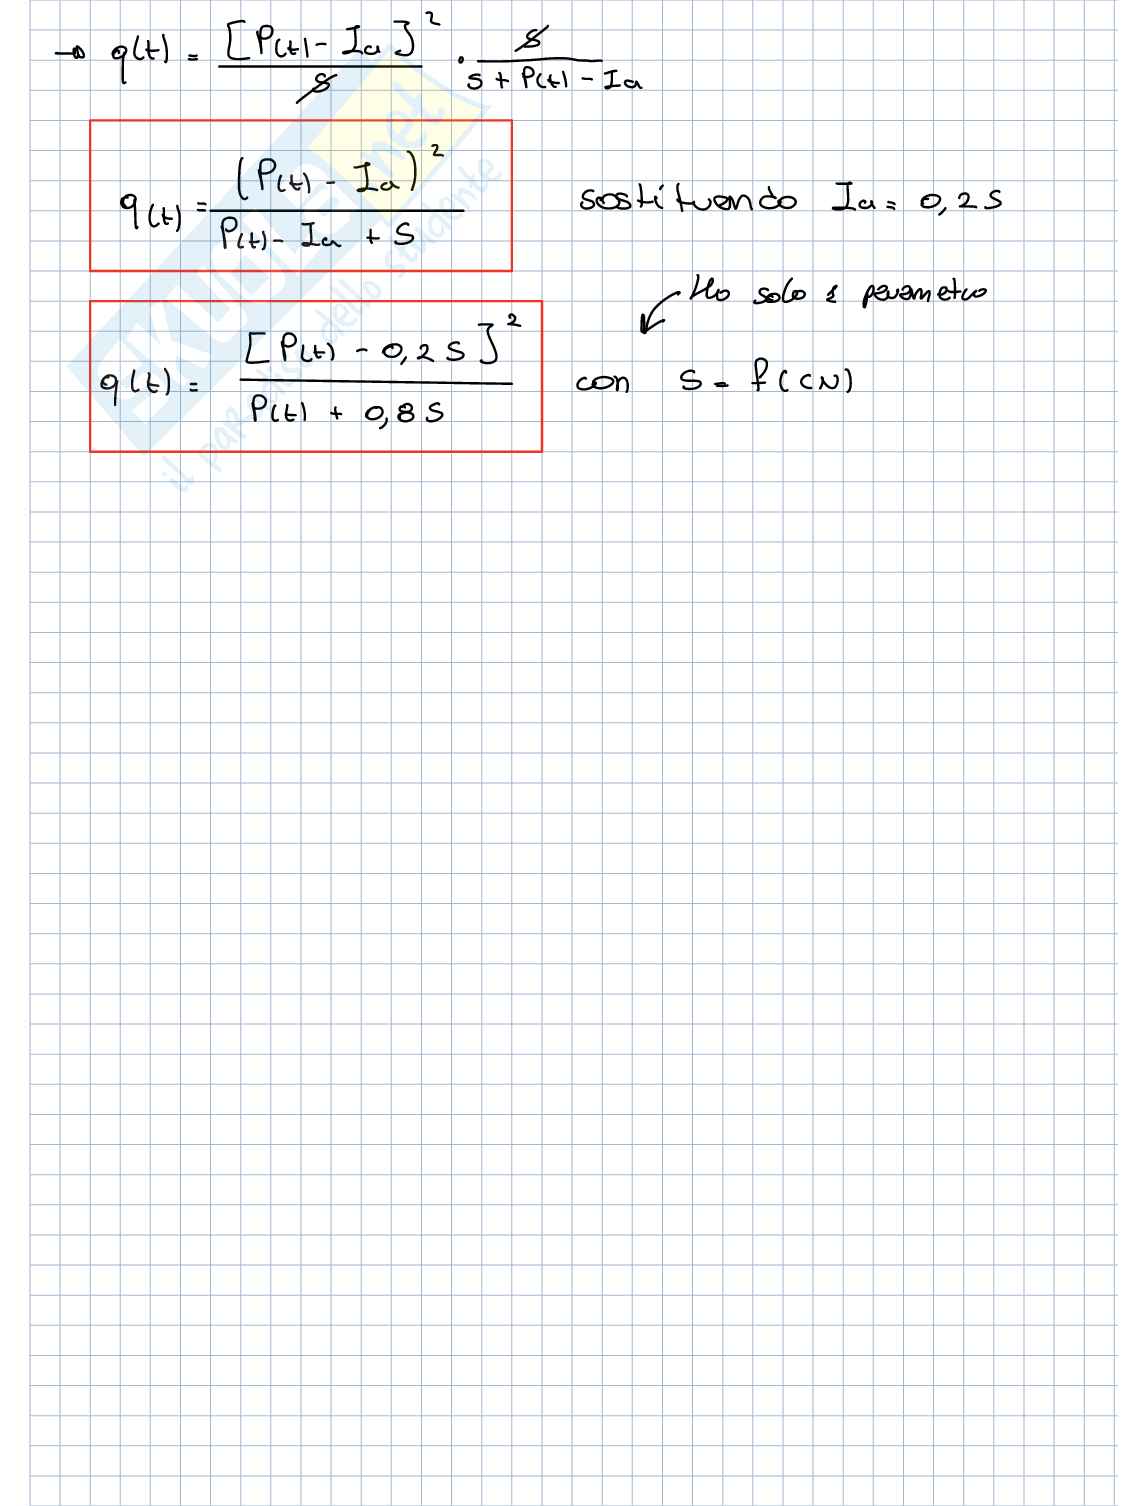 → q(t) = [P(t) - Ia]² / S · S / S + P(t) - Ia
q(t) = (P(t) - Ia)² / P(t) - Ia + S sostituendo Ia = 0,2 S
Ho solo 1 parametro
q(t) = [P(t) - 0,2 S]² / P(t) + 0,8 S con S = f(CN)
SKUOLA.net
il paradiso dello studente